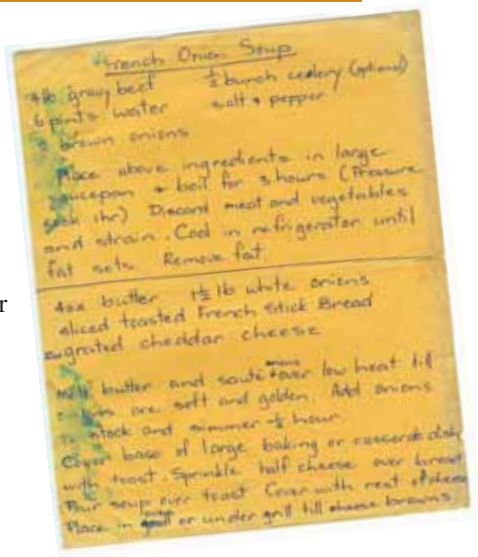 French Onion Soup
lb gravy beef ½ bunch celery (optional)
6 pints water salt + pepper
brown onions
Place above ingredients in large
saucepan + boil for 3 hours (Pressure
cook 1hr) Discard meat and vegetables
and strain. Cool in refrigerator until
fat sets. Remove fat.
r
4oz butter 1½ lb white onions
sliced toasted French Stick Bread
grated cheddar cheese
Melt butter and sauté over low heat till
are soft and golden. Add onions
To stock and simmer ½ hour.
Cover base of large baking or casserole dish
with toast. Sprinkle half cheese over bread
Pour soup over toast Cover with rest of cheese
Place in or under grill till cheese browns